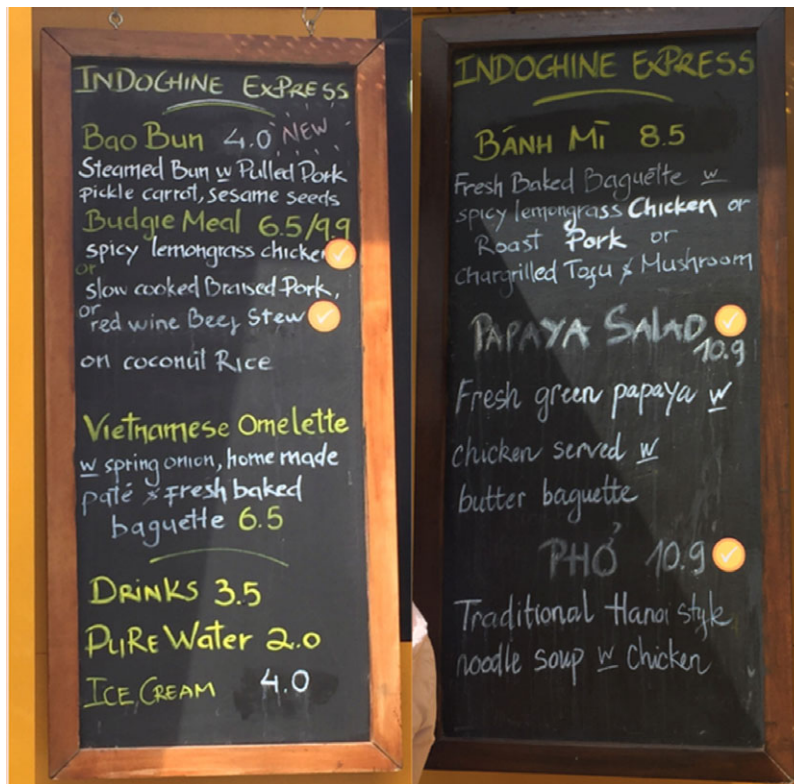 INDOCHINE EXPRESS
Bao Bun 4.0 NEW
Steamed Bun w Pulled Pork
pickle carrot, sesame seeds
Budgie Meal 6.5/9.9
spicy lemongrass chicken
or
slow cooked Braised Pork,
or
red wine Beef Stew
on coconut Rice
Vietnamese Omelette
w spring onion, home made
paté & Fresh baked
baguette 6.5
DRINKS 3.5
PURE Water 2.0
ICE CREAM 4.0
INDOCHINE EXPRESS
BÁNH MÌ 8.5
Fresh Baked Baguette w
spicy lemongrass Chicken or
Roast Pork or
Chargrilled Tofu & Mushroom
PAPAYA SALAD
10.9
Fresh green papaya w
chicken served w
butter baguette
PHỞ 10.9
Traditional Hanoi style
noodle soup w Chicken